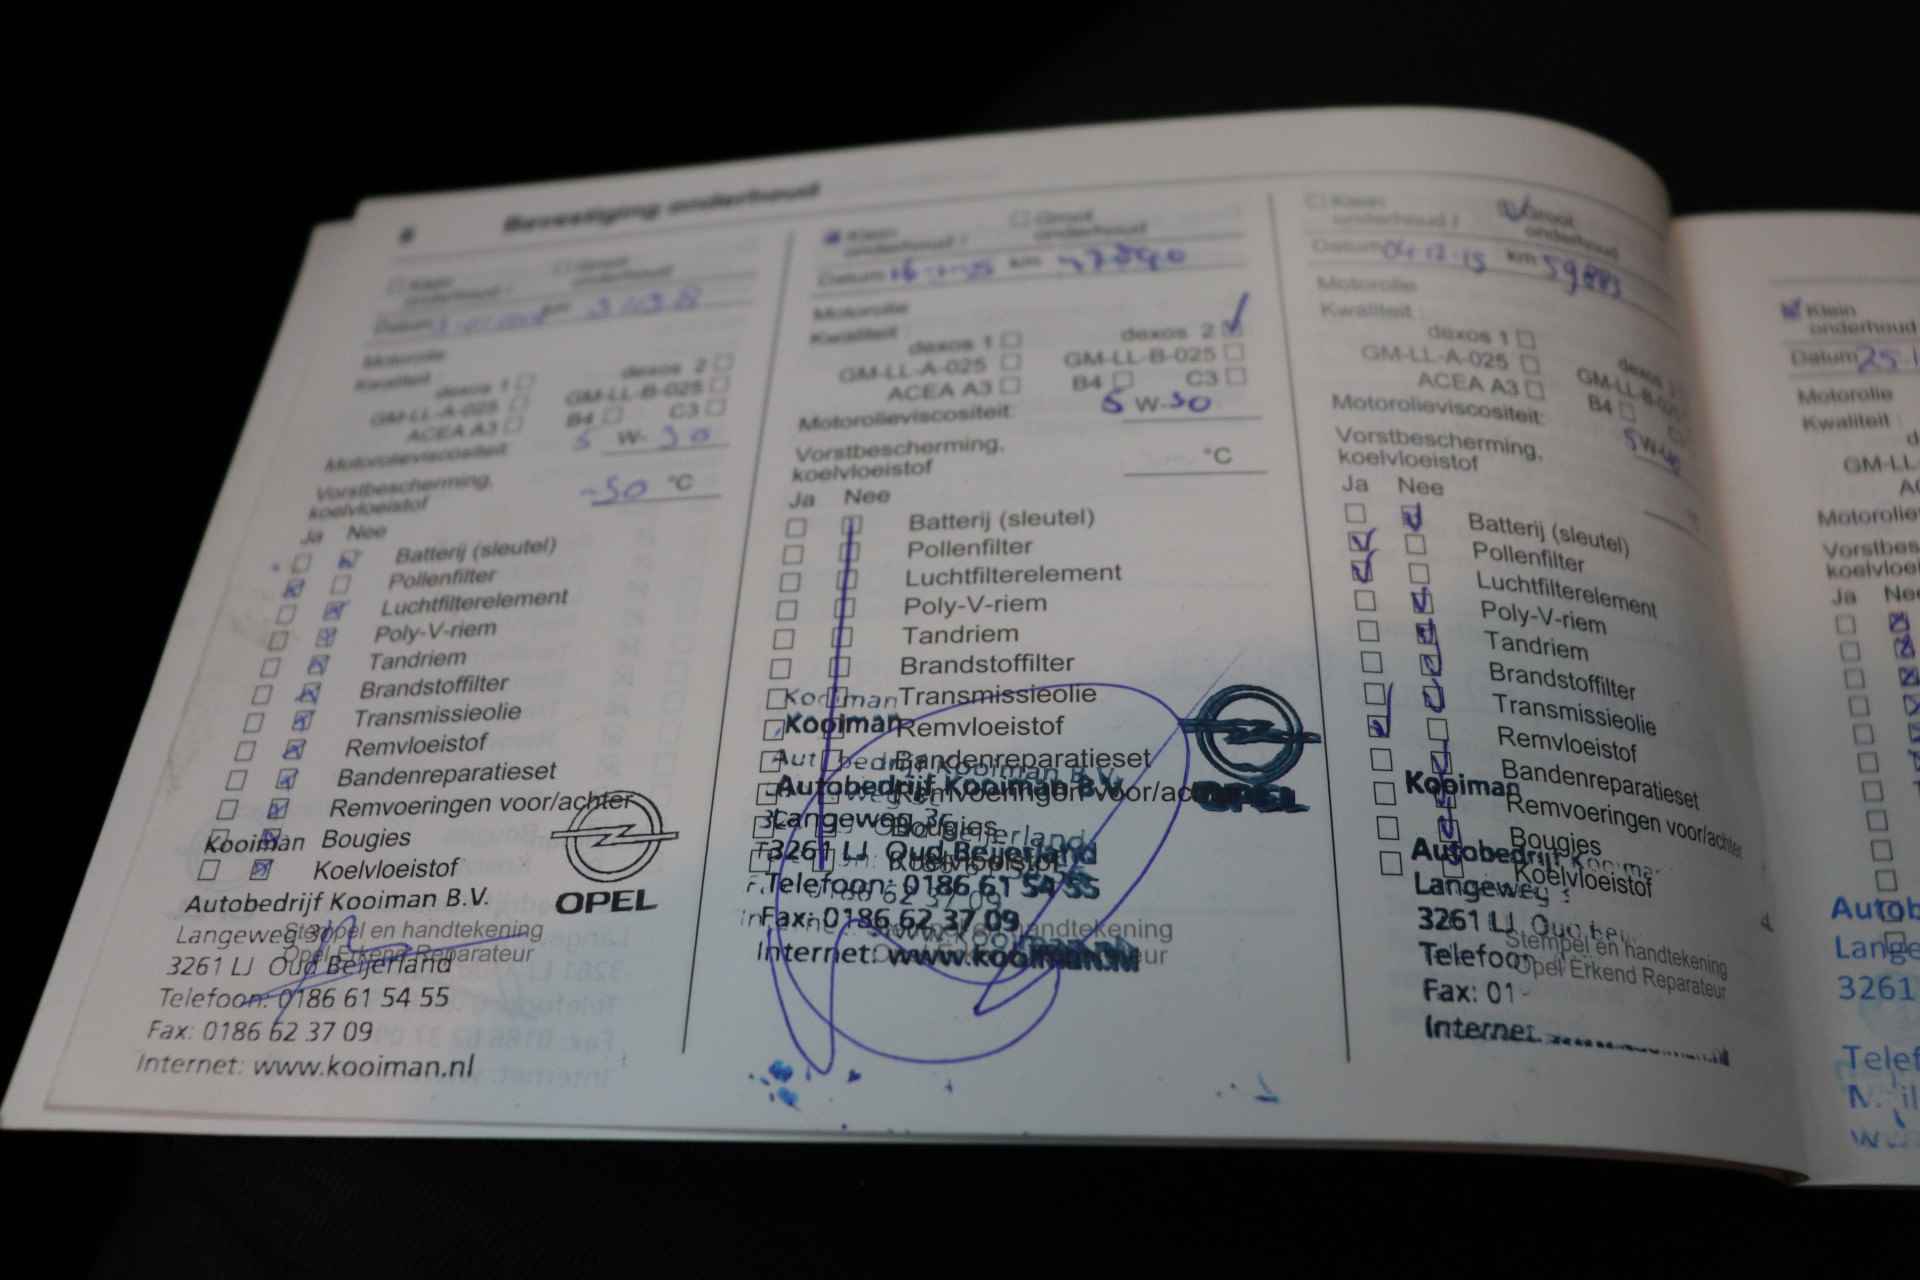 6 Bevestiging onderhoud
Klein onderhoud / Groot onderhoud
Datum km
Motorolie
Kwaliteit
dexos 1 dexos 2
GM-LL-A-025 GM-LL-B-025
ACEA A3 B4 C3
Motorolieviscositeit: 5 W- 30
Vorstbescherming,
koelvloeistof -30 °C
Ja Nee
Batterij (sleutel)
Pollenfilter
Luchtfilterelement
Poly-V-riem
Tandriem
Brandstoffilter
Transmissieolie
Remvloeistof
Bandenreparatieset
Remvoeringen voor/achter
Kooiman Bougies
Koelvloeistof
OPEL
Autobedrijf Kooiman B.V.
Langeweg 36
Stempel en handtekening
Opel Erkend Reparateur
3261 LJ Oud Beijerland
Telefoon: 0186 61 54 55
Fax: 0186 62 37 09
Internet: www.kooiman.nl
Klein onderhoud / Groot onderhoud
Datum km
Motorolie
Kwaliteit
dexos 1 dexos 2
GM-LL-A-025 GM-LL-B-025
ACEA A3 B4 C3
Motorolieviscositeit: 5 W-30
Vorstbescherming,
koelvloeistof °C
Ja Nee
Batterij (sleutel)
Pollenfilter
Luchtfilterelement
Poly-V-riem
Tandriem
Brandstoffilter
Kooiman Transmissieolie
Kooiman Remvloeistof
Bandenreparatieset
Autobedrijf Kooiman B.V.
Remvoeringen voor/ac
OPEL
Langeweg 36
Bougies
3261 LJ Oud Beijerland
Koelvloeistof
Telefoon: 0186 61 54 55
Fax: 0186 62 37 09
handtekening
Internet: www.kooiman.nl
Klein onderhoud / Groot onderhoud
Datum 04-12-15 km 59883
Motorolie
Kwaliteit
dexos 1 dexos
GM-LL-A-025 GM-LL-B-025
ACEA A3 B4
Motorolieviscositeit: 5W-40
Vorstbescherming,
koelvloeistof
Ja Nee
Batterij (sleutel)
Pollenfilter
Luchtfilterelement
Poly-V-riem
Tandriem
Brandstoffilter
Transmissieolie
Remvloeistof
Bandenreparatieset
Kooiman
Remvoeringen voor/achter
Bougies
Autobedrijf
Koelvloeistof
Langeweg
3261 LJ Oud
Stempel en handtekening
Opel Erkend Reparateur
Telefoon
Fax: 01
Internet
Klein
onderhoud
Datum 25
Motorolie
Kwaliteit
GM-LL
Motorolie
Vorstbes
koelvloei
Ja Nee
Autob
Lange
3261
Telef